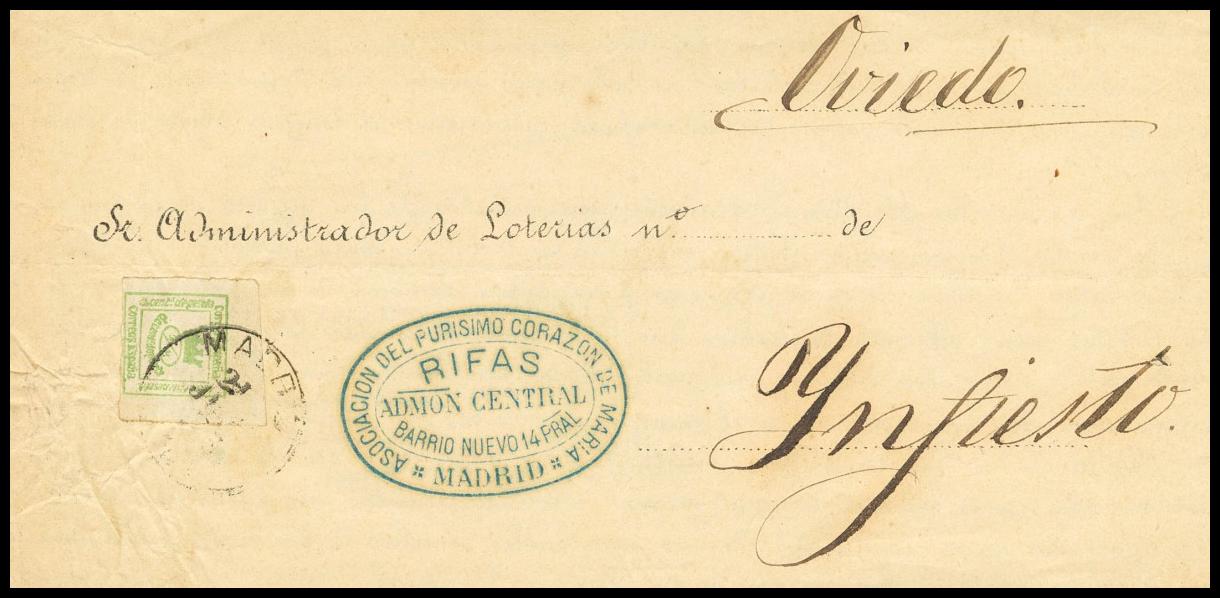 Oviedo.
Sr. Administrador de Loterias nº de
MADR
ASOCIACION DEL PURISIMO CORAZON DE MARIA
RIFAS
ADMON CENTRAL
BARRIO NUEVO 14 PRAL
* MADRID *
Ynfiesto.